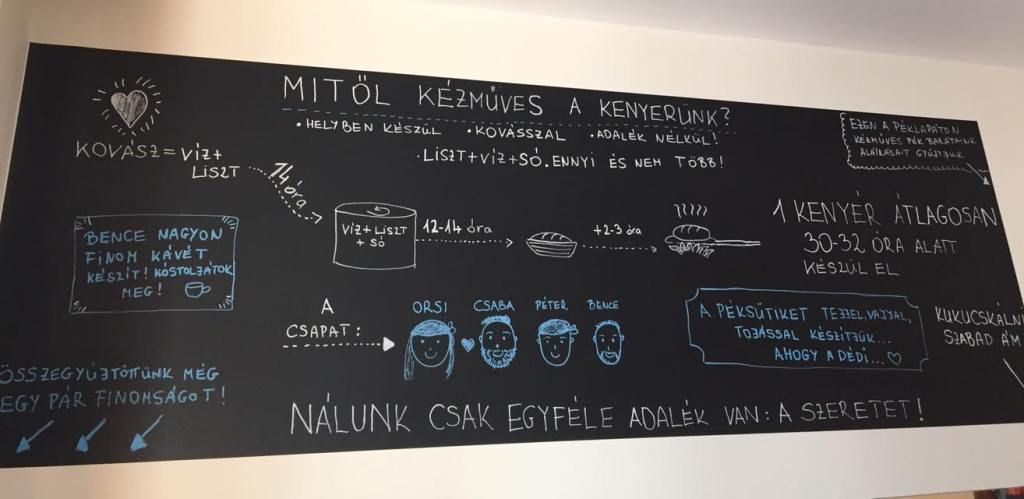 MITŐL KÉZMŰVES A KENYERÜNK?
• HELYBEN KÉSZÜL • KOVÁSSZAL • ADALÉK NÉLKÜL!
• LISZT+VÍZ+SÓ. ENNYI ÉS NEM TÖBB!
KOVÁSZ = VÍZ+
LISZT
14 óra
VÍZ+LISZT
+ SÓ
12-14 óra
+2-3 óra
EZEN A PÉKLAPÁTON
KÉZMŰVES PÉK BARÁTAINK
ALÁÍRÁSAIT GYŰJTJÜK
1 KENYÉR ÁTLAGOSAN
30-32 ÓRA ALATT
KÉSZÜL EL
BENCE NAGYON
FINOM KÁVÉT
KÉSZÍT! KÓSTOLJÁTOK
MEG!
A
CSAPAT:
ORSI CSABA PÉTER BENCE
A PÉKSÜTIKET TEJJEL, VAJJAL,
TOJÁSSAL KÉSZÍTJÜK...
AHOGY A DÉDI...
KUKUCSKÁLNI
SZABAD ÁM
ÖSSZEGYŰJTÖTTÜNK MÉG
EGY PÁR FINOMSÁGOT!
NÁLUNK CSAK EGYFÉLE ADALÉK VAN: A SZERETET!